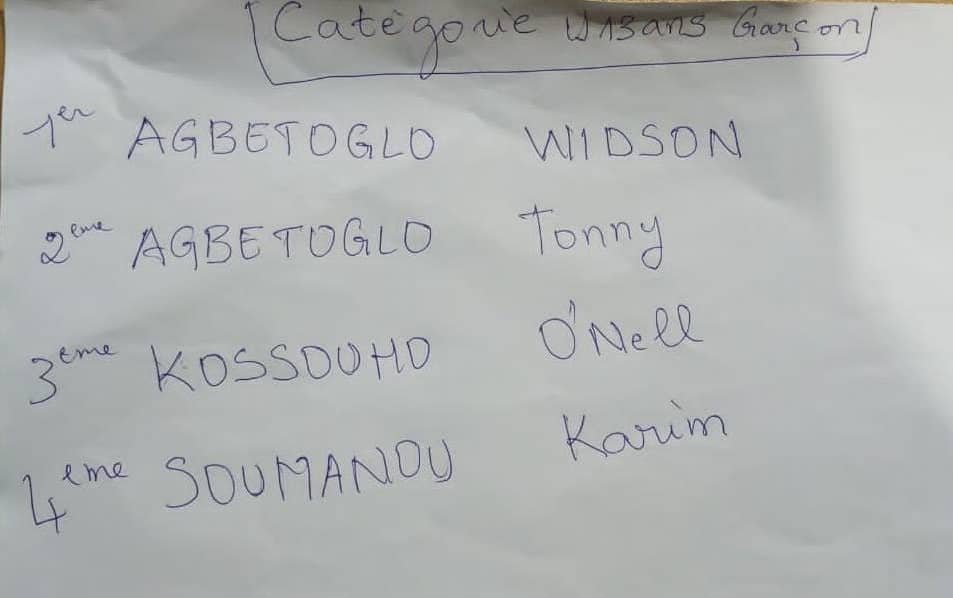 Catégorie U13ans Garçon
1er AGBETOGLO WIDSON
2eme AGBETOGLO Tonny
3eme KOSSOUHO O'Nell
4eme SOUMANOU Karim